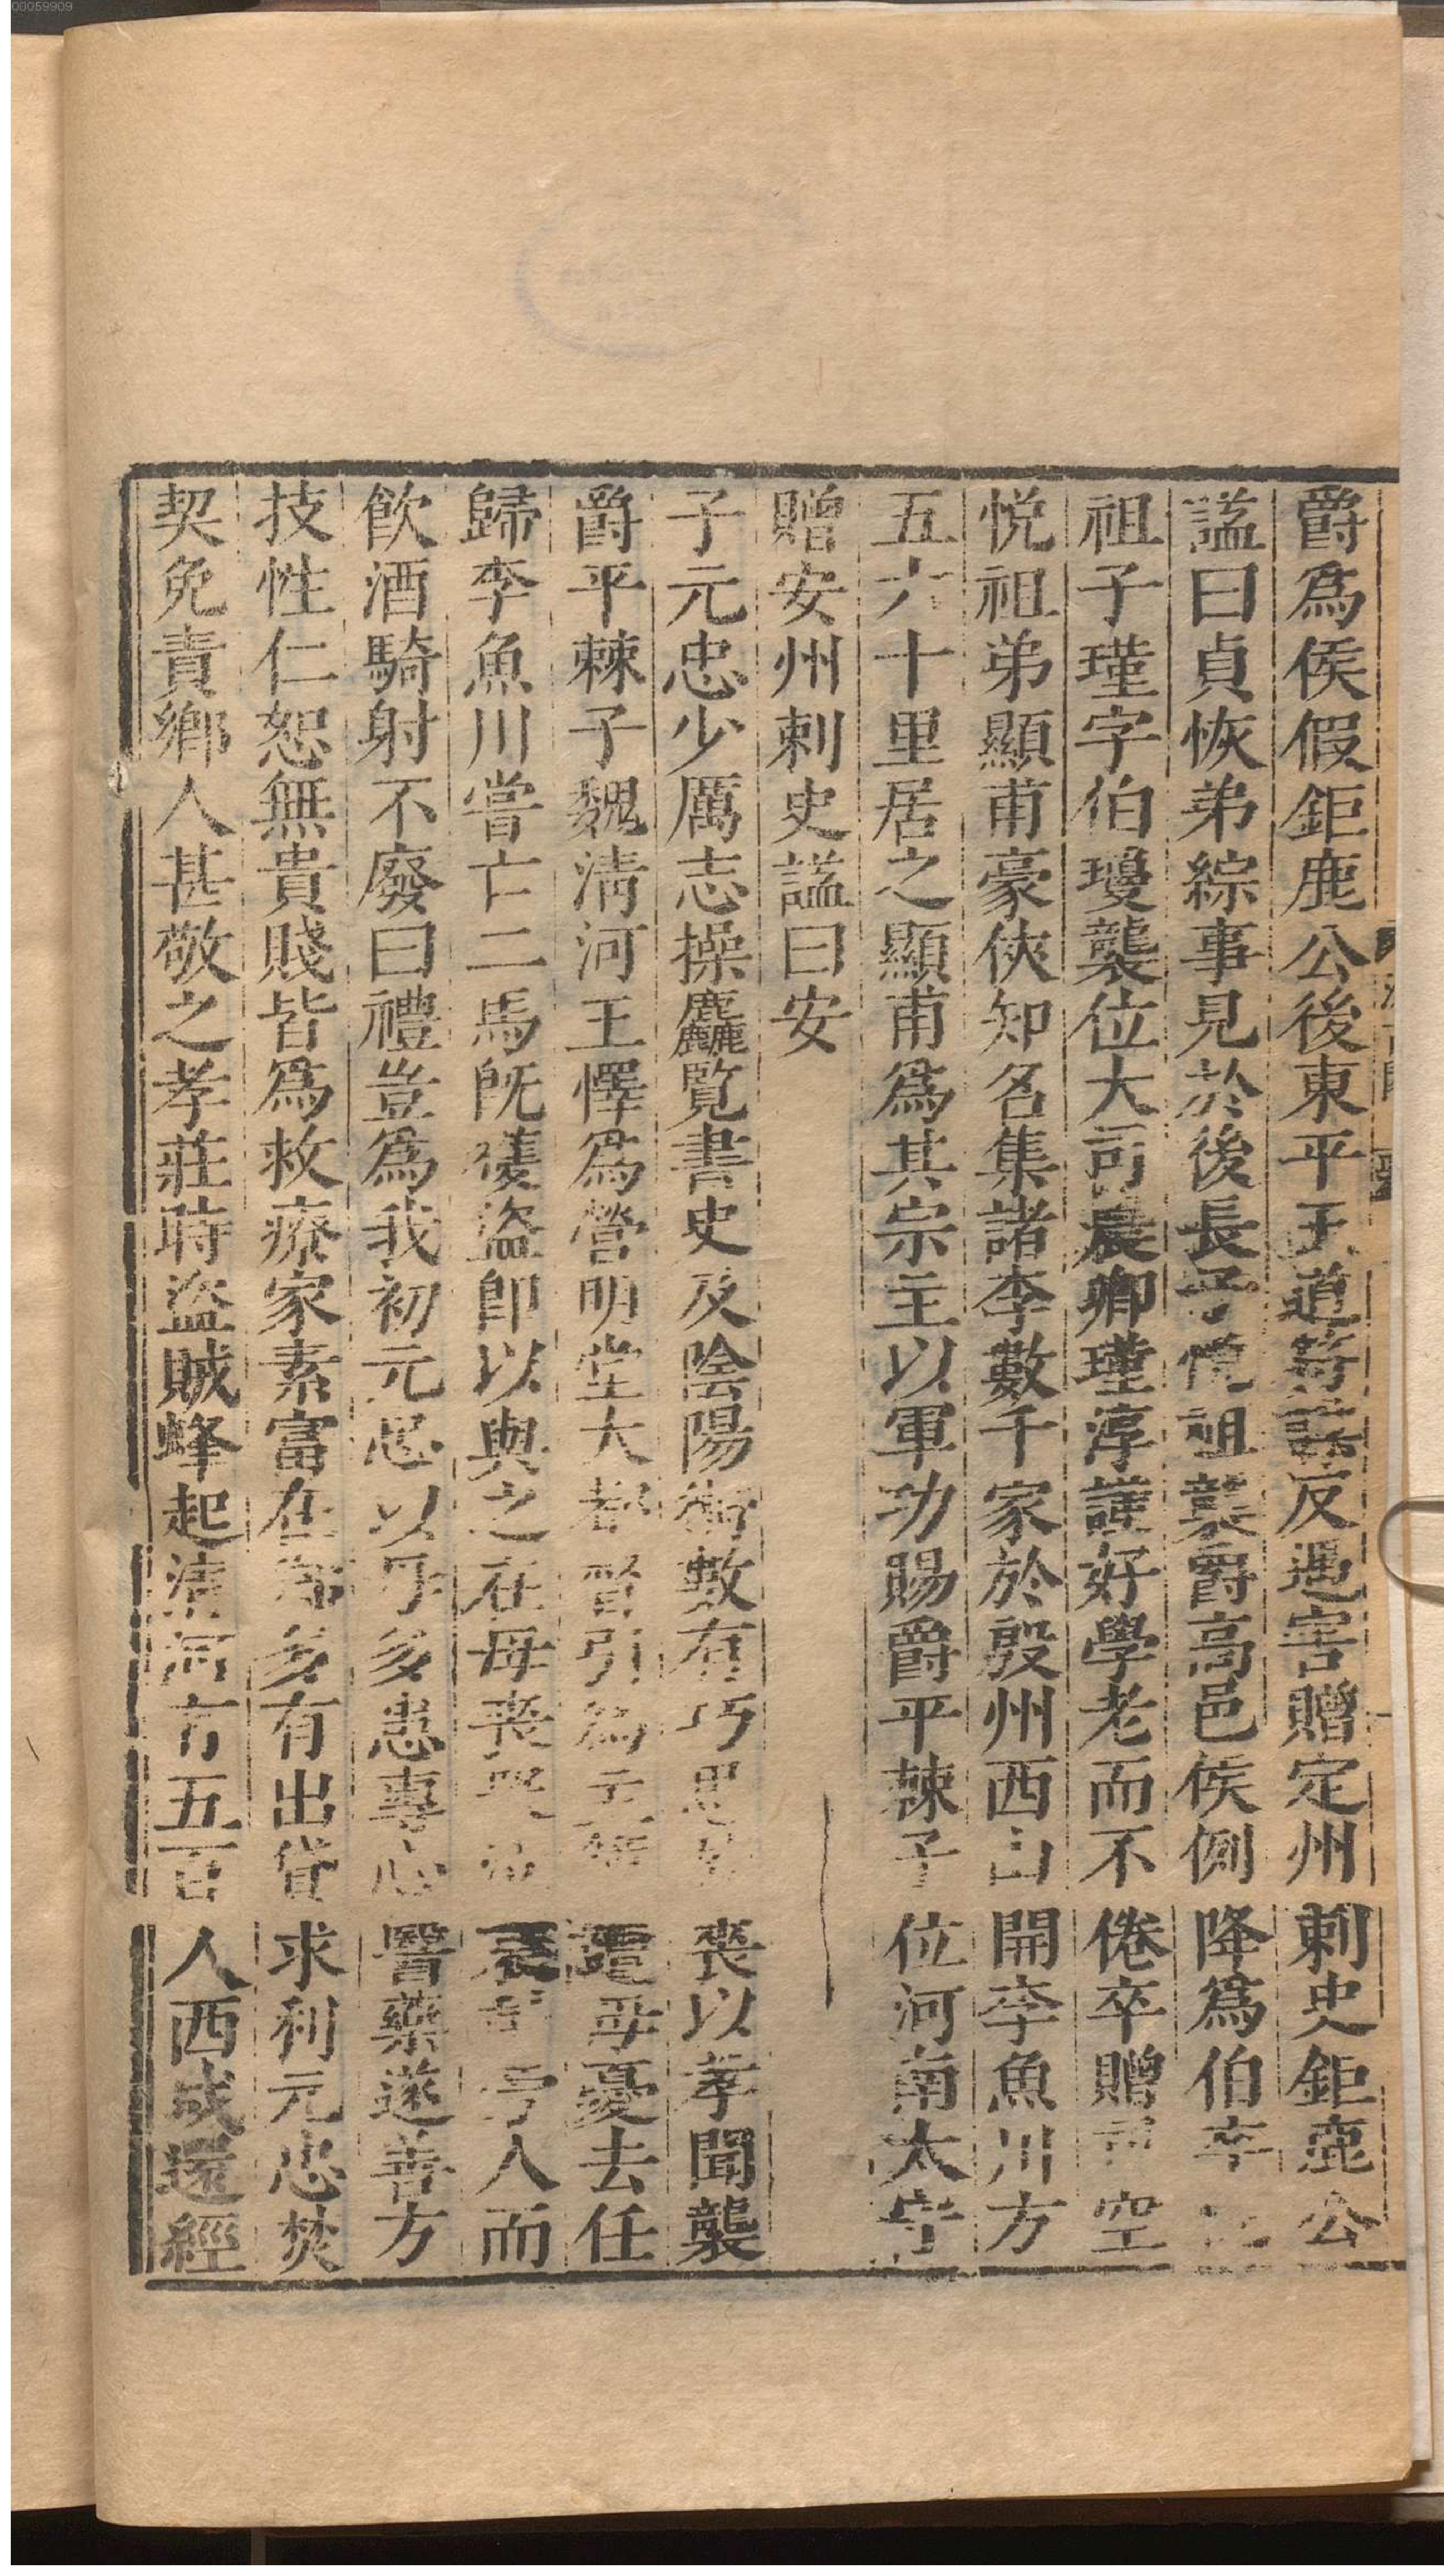 00059909
爵為侯假鉅鹿公後東平王道符謀反遇害贈定州刺史鉅鹿公
謚曰貞恢弟綜事見於後長子悅祖襲爵高邑侯例降為伯李
祖子瑾字伯瓊襲位大司農卿瑾淳謹好學老而不倦卒贈司空
悅祖弟顯甫豪俠知名集諸李數千家於殷州西山開李魚川方
五六十里居之顯甫為其宗主以軍功賜爵平棘子位河南太守
贈安州刺史謚曰安
子元忠少厲志操麤覽書史及陰陽術數有巧思居喪以孝聞襲
爵平棘子魏清河王懌為營明堂大都督引為主簿遭母憂去任
歸李魚川嘗亡二馬既獲盜即以與之在母喪哭泣哀動旁人而
飲酒騎射不廢曰禮豈為我初元忠以母多患專心醫藥遂善方
技性仁恕無貴賤皆為救療家素富在鄉多有出貸求利元忠焚
契免責鄉人甚敬之孝莊時盜賊蜂起清河有五百人西戍還經